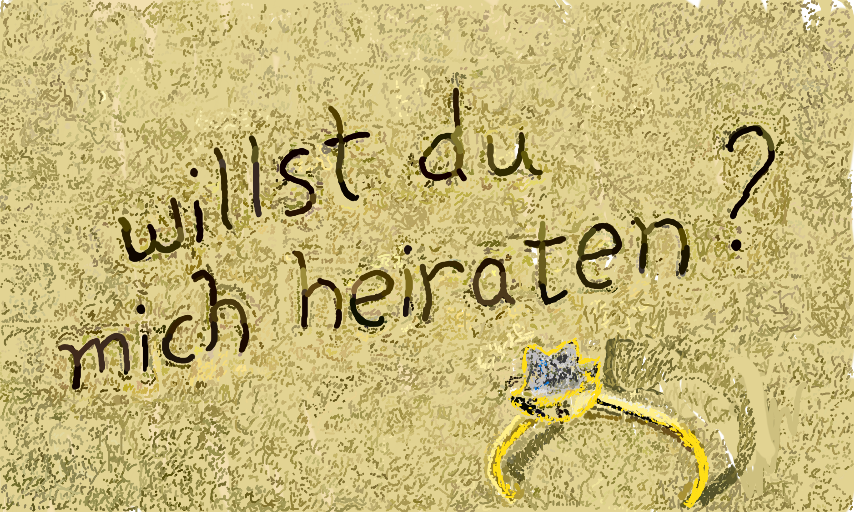 willst du
mich heiraten?